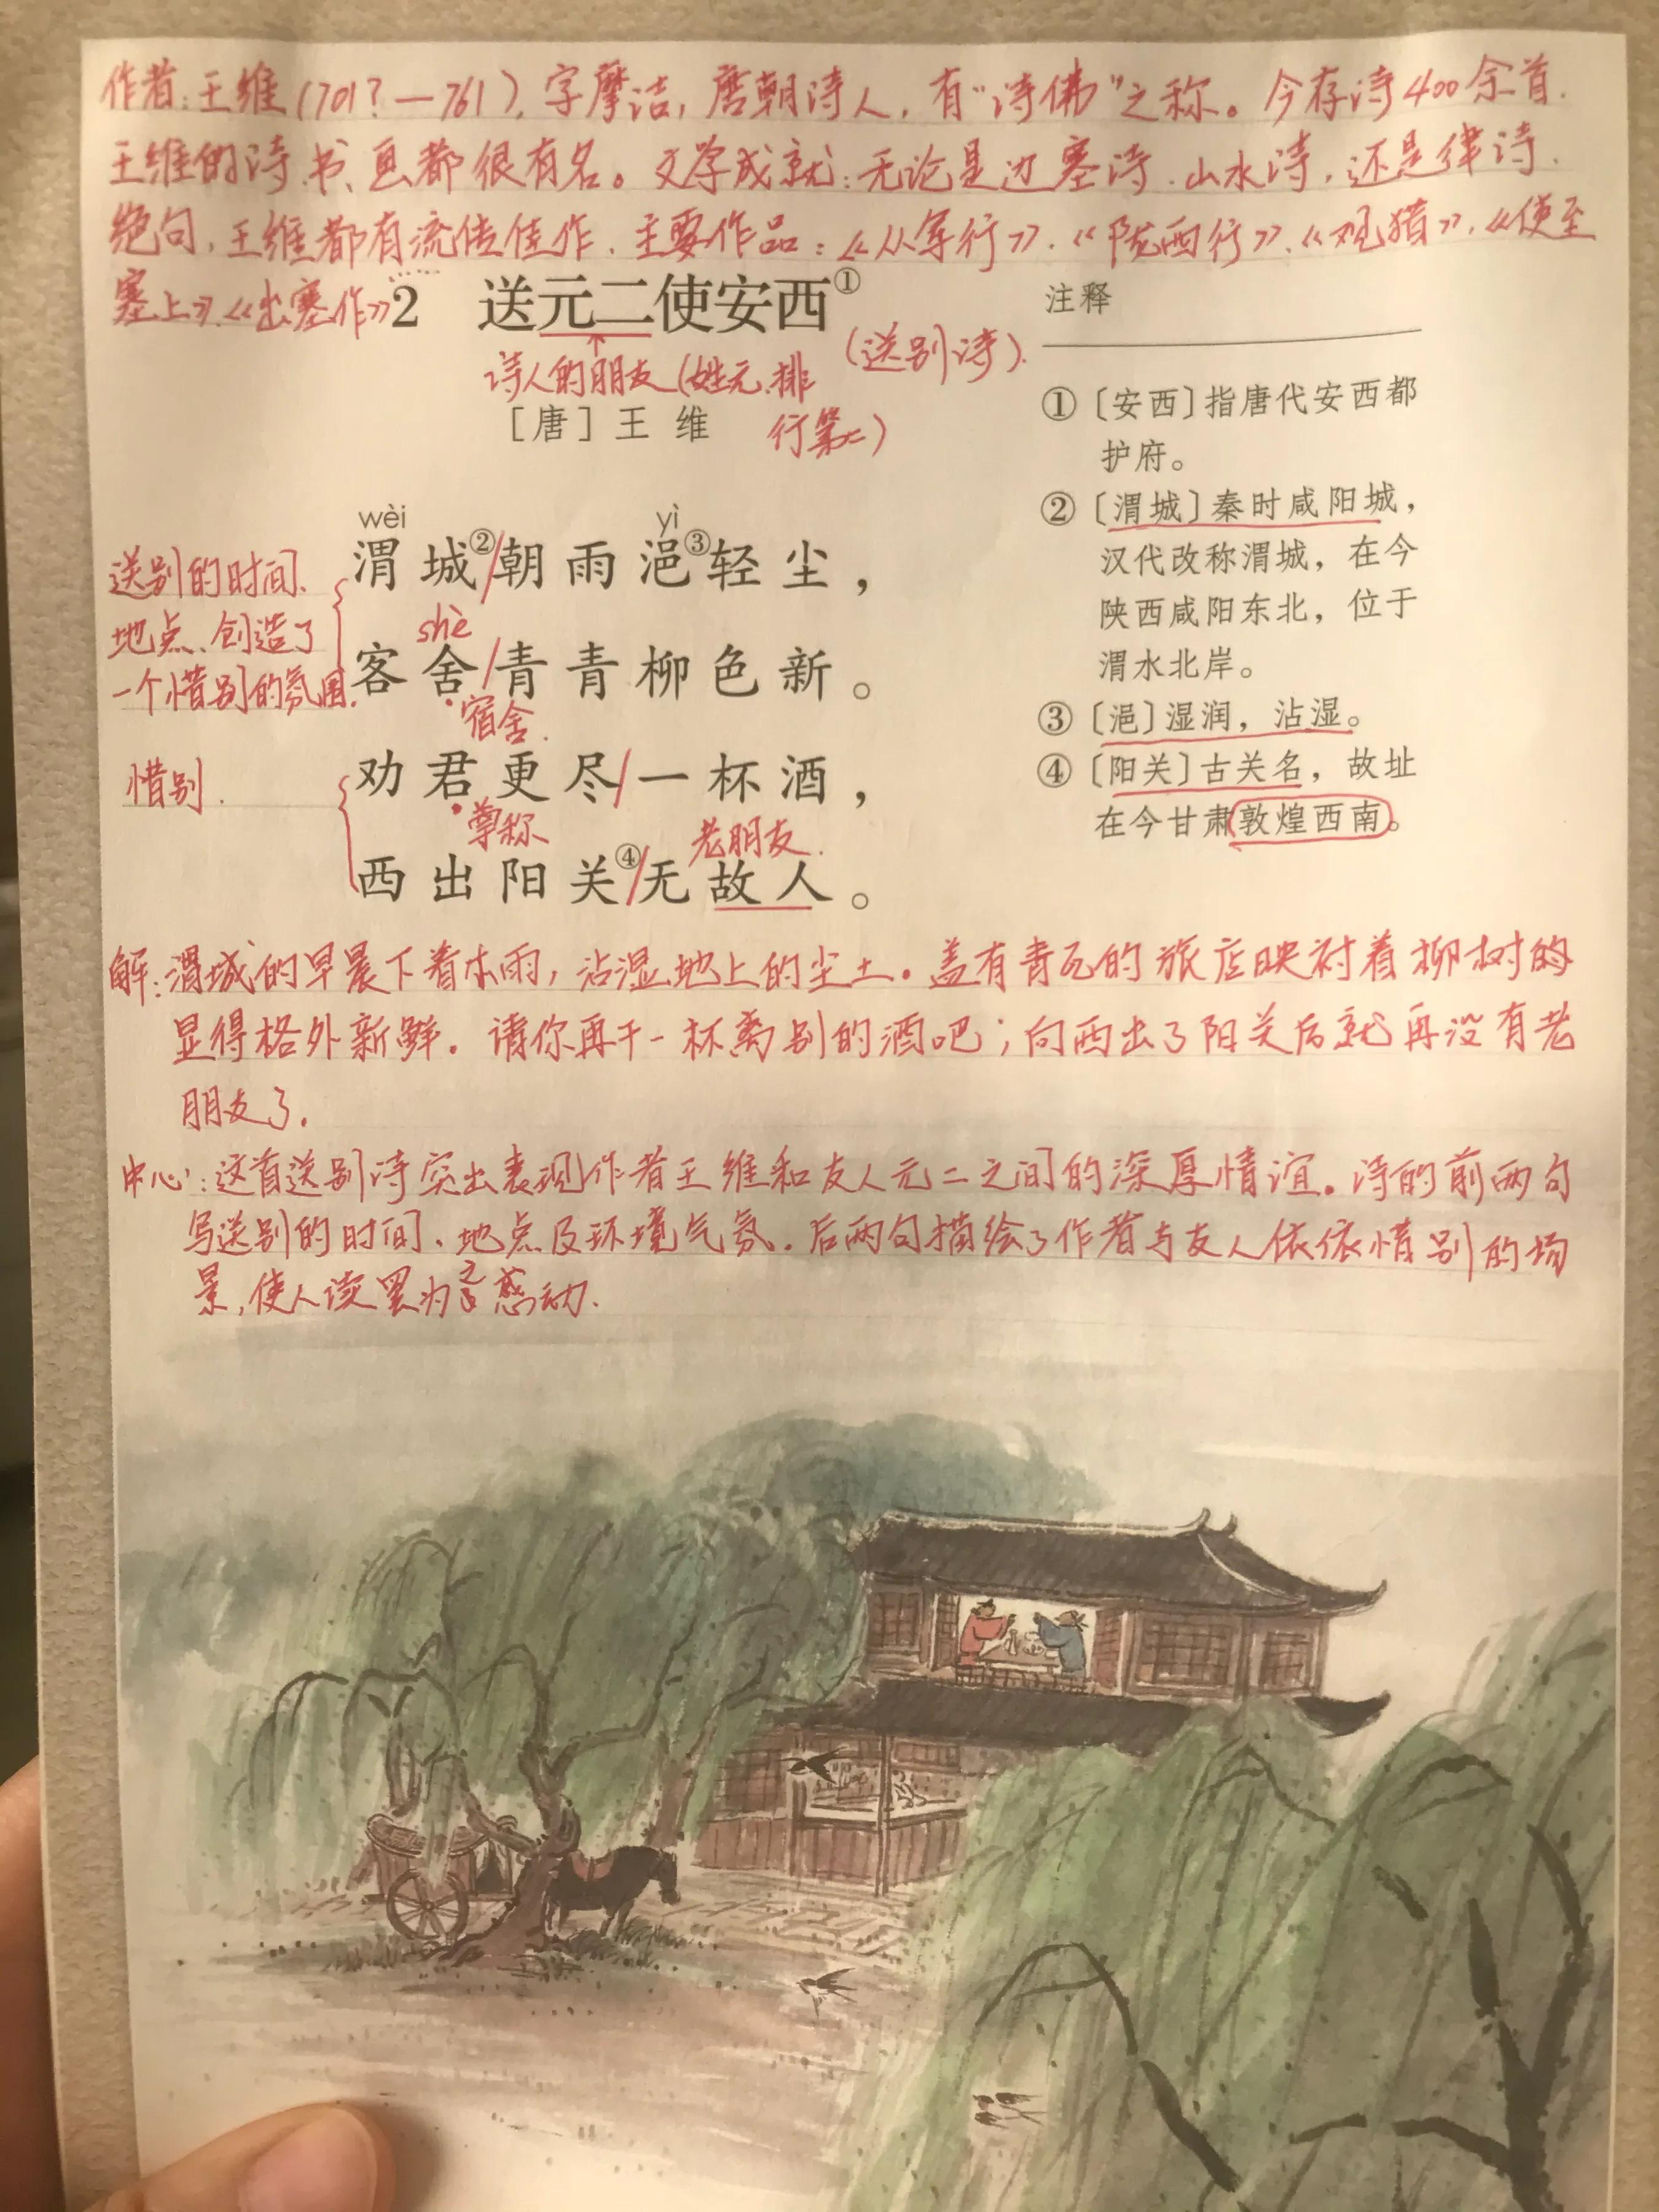 作者：王维（701？—761），字摩诘，唐朝诗人，有“诗佛”之称。今存诗400余首．
王维的诗、书、画都很有名。文学成就：无论是边塞诗、山水诗，还是律诗、
绝句，王维都有流传佳作．主要作品：《从军行》、《陇西行》、《观猎》、《使至
塞上》、《出塞作》
2 送元二使安西①
（送别诗）．
诗人的朋友（姓元、排
行第二）
［唐］王 维
wèi yì
送别的时间、
渭城②/朝雨浥③轻尘，
地点、创造了
shè
一个惜别的氛围．
客舍/青青柳色新。
宿舍．
惜别．
劝君更尽/一杯酒，
尊称
老朋友．
西出阳关④/无故人。
注释
①［安西］指唐代安西都
护府。
②［渭城］秦时咸阳城，
汉代改称渭城，在今
陕西咸阳东北，位于
渭水北岸。
③［浥］湿润，沾湿。
④［阳关］古关名，故址
在今甘肃敦煌西南。
解：渭城的早晨下着小雨，沾湿地上的尘土。盖有青瓦的旅店映衬着柳树的
显得格外新鲜。请你再干一杯离别的酒吧；向西出了阳关后就再没有老
朋友了．
中心：这首送别诗突出表现作者王维和友人元二之间的深厚情谊。诗的前两句
写送别的时间、地点及环境气氛．后两句描绘了作者与友人依依惜别的场
景，使人读罢为之感动．